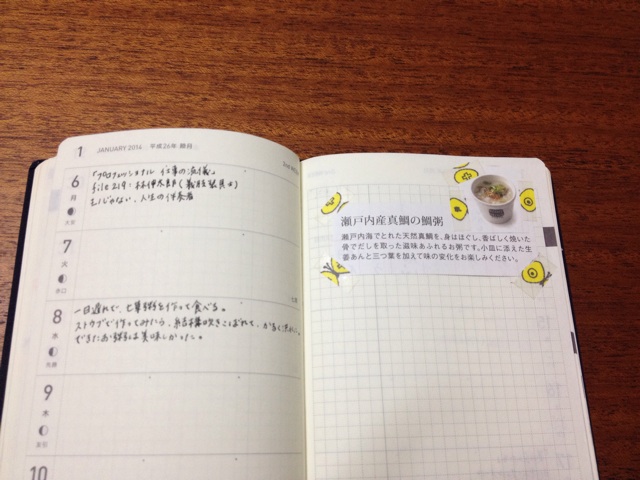 1 JANUARY 2014 平成26年 睦月
6
月
「プロフェッショナル 仕事の流儀」
file 219・林伸太郎(義肢装具士)
モノじゃない、人生の伴奏者
大安
7
火
赤口
七草
8
水
先勝
一日遅れで、七草粥を作って食べる。
ストウブで作ってみたら、結構吹きこぼれて、
できたお粥は美味しかった。
9
木
友引
10
瀬戸内産真鯛の鯛粥
瀬戸内海でとれた天然真鯛を、身はほぐし、香ばしく焼いた
骨でだしを取った滋味あふれるお粥です。小皿に添えた生
姜あんと三つ葉を加えて味の変化をお楽しみください。